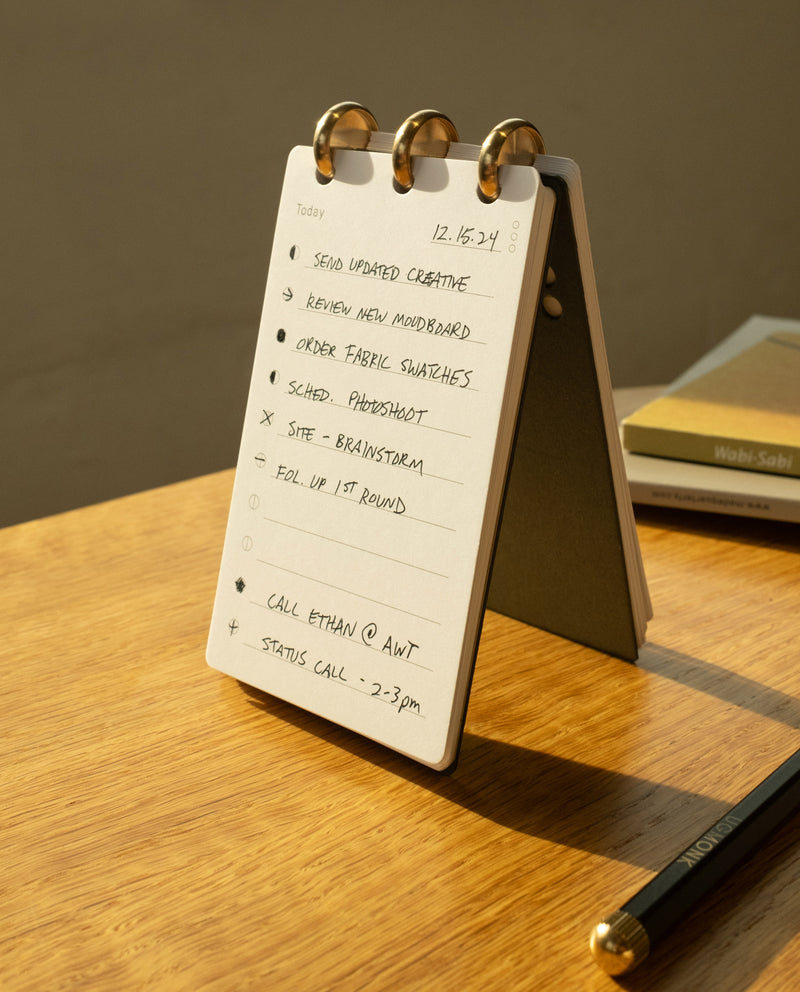 Today
12.15.24
SEND UPDATED CREATIVE
REVIEW NEW MOODBOARD
ORDER FABRIC SWATCHES
SCHED. PHOTOSHOOT
SITE - BRAINSTORM
FOL. UP 1ST ROUND
CALL ETHAN @ AWT
STATUS CALL - 2-3pm
Wabi-Sabi
UGMONK